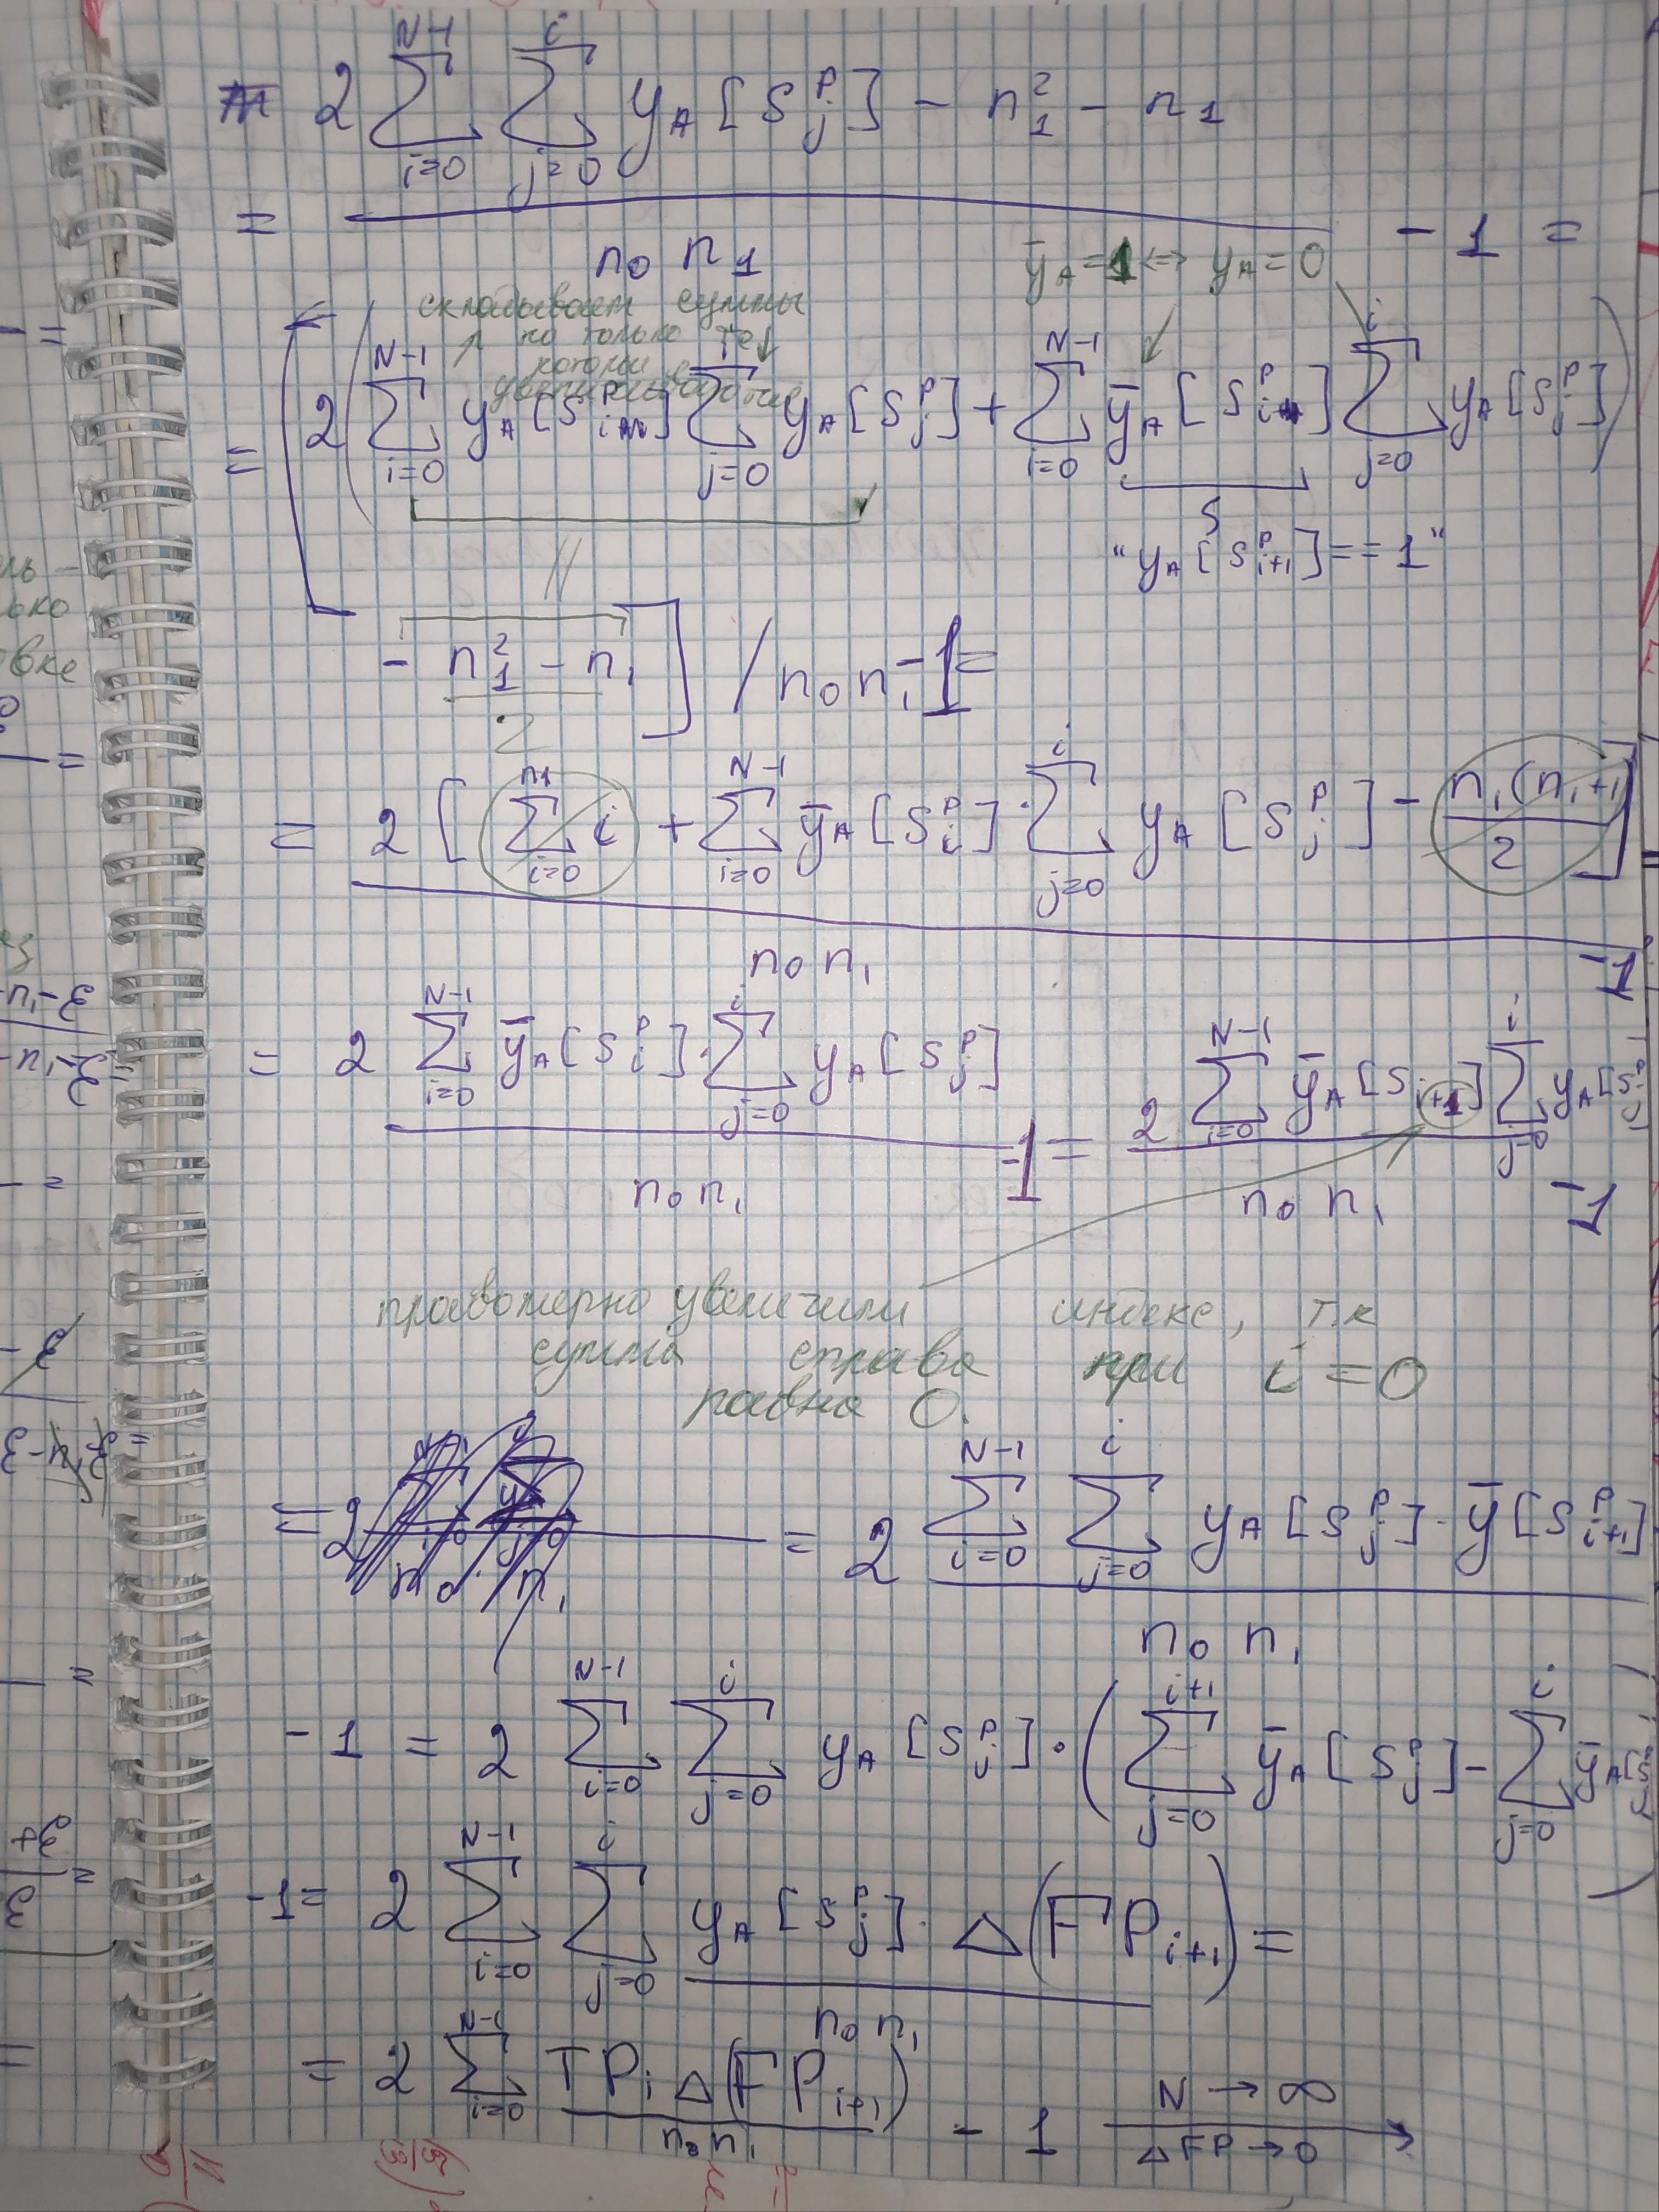 2 Σ_{i=0}^{N-1} Σ_{j=0}^{i} y_A [S_j^p] - n_1^2 - n_1
= ――― - 1 =
n_0 n_1
ȳ_A = 1 <=> y_A = 0
складывает суммы
но только те
которые
= [ 2 ( Σ_{i=0}^{N-1} y_A [S_i^p] Σ_{j=0}^{i} y_A [S_j^p] + Σ_{i=0}^{N-1} ȳ_A [S_i^p] Σ_{j=0}^{i} y_A [S_j^p] )
"y_A [S_{i+1}^p] == 1"
- n_1^2 - n_1 ] / n_0 n_1 - 1 =
2
= 2 [ Σ_{i=0}^{n_1} i + Σ_{i=0}^{N-1} ȳ_A [S_i^p] · Σ_{j=0}^{i} y_A [S_j^p] - n_1(n_1+1)/2 ]
n_0 n_1 - 1
= 2 Σ_{i=0}^{N-1} ȳ_A [S_i^p] · Σ_{j=0}^{i} y_A [S_j^p] / n_0 n_1 - 1 = 2 Σ_{i=0}^{N-1} ȳ_A [S_{i+1}] Σ_{j=0}^{i} y_A [S_j^p] / n_0 n_1 - 1
правомерно увеличили индекс, т.к
сумма справа при i = 0
равна 0.
= 2 Σ_{i=0}^{N-1} Σ_{j=0}^{i} y_A [S_j^p] · ȳ [S_{i+1}^p]
n_0 n_1
- 1 = 2 Σ_{i=0}^{N-1} Σ_{j=0}^{i} y_A [S_j^p] · ( Σ_{j=0}^{i+1} ȳ_A [S_j^p] - Σ_{j=0}^{i} ȳ_A [S_j^p] )
-1 = 2 Σ_{i=0}^{N-1} Σ_{j=0}^{i} y_A [S_j^p] · Δ(FP_{i+1}) =
n_0 n_1
= 2 Σ_{i=0}^{N-1} TP_i Δ(FP_{i+1}) / n_0 n_1 - 1 N → ∞
ΔFP → 0